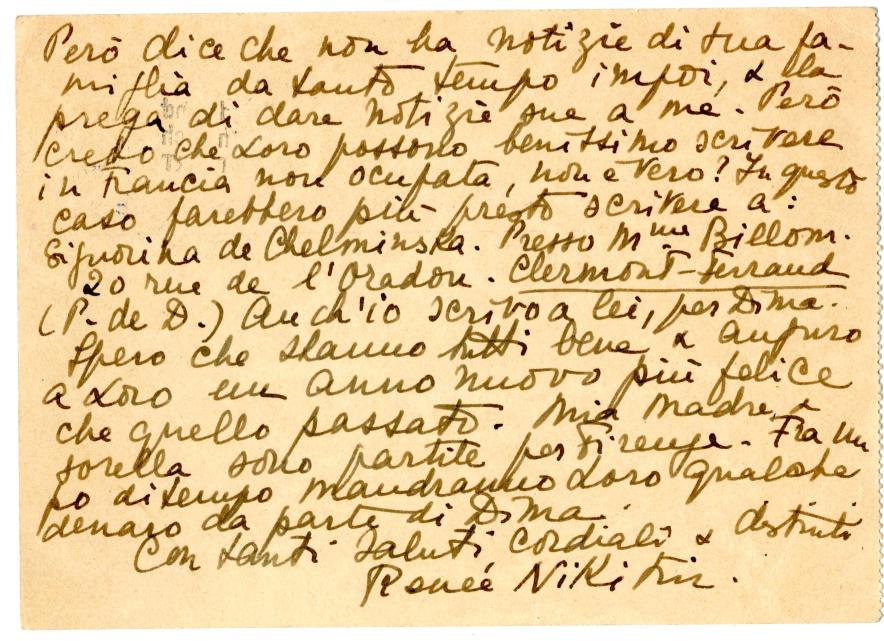 Però dice che non ha notizie di sua fa-
miglia da tanto tempo impoi, & la
prega di dare notizie sue a me. Però
credo che Loro possono benissimo scrivere
in Francia non ocupata, non è vero? In questo
caso farebbero più presto scrivere a:
Signorina de Chelminska. Presso Mme Billom.
20 rue de l'Oradou. Clermont-Ferrand
(P. de D.) Anch'io scrivo a lei, per Dima.
Spero che stanno tutti bene & auguro
a Loro un anno nuovo più felice
che quello passato. Mia Madre, &
sorella sono partite per Firenze. Fra un
po di tempo mandranno Loro qualche
denaro da parte di Dima.
Con tanti saluti cordiali & distinti
Reneé Nikitin.